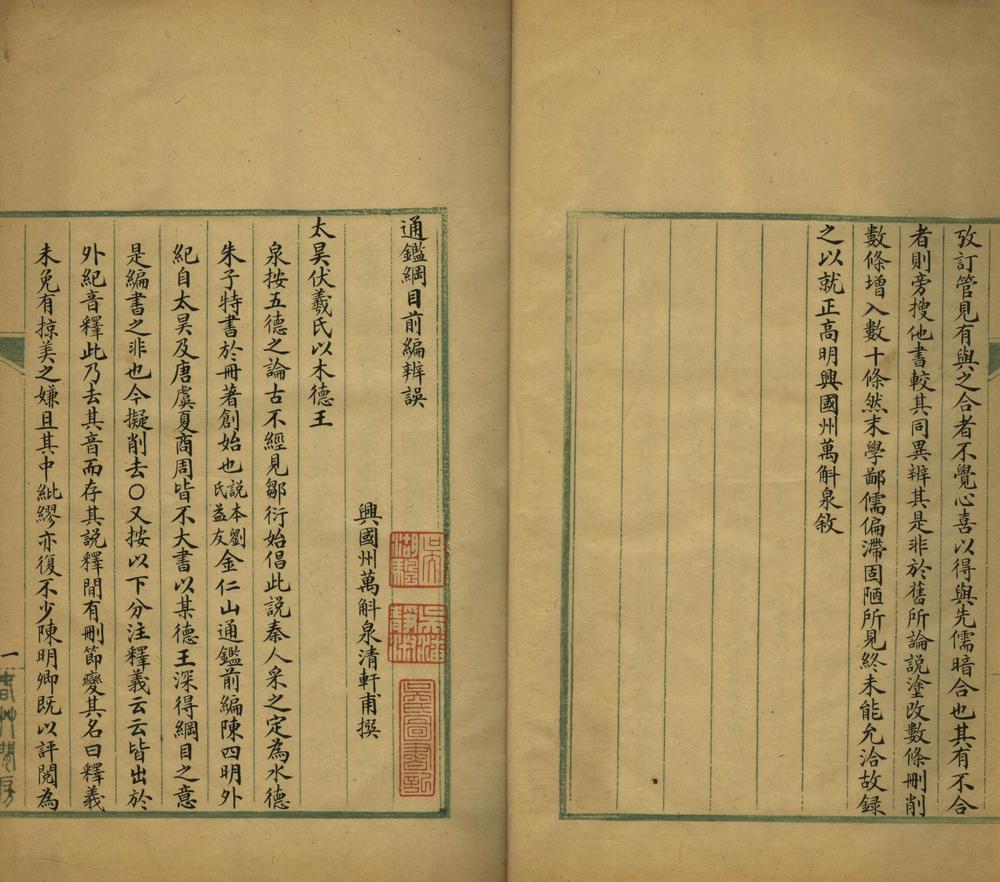 攷訂管見有與之合者不覺心喜以得與先儒暗合也其有不合
者則旁搜他書較其同異辨其是非於舊所論說塗改數條刪削
數條增入數十條然末學鄙儒偏滯固陋所見終未能允洽故録
之以就正高明興國州萬斛泉敘
通鑑綱目前編辨誤
興國州萬斛泉清軒甫撰
太昊伏羲氏以木德王
泉按五德之論古不經見鄒衍始倡此説秦人采之定為水德
朱子特書於冊著創始也説本劉氏益友金仁山通鑑前編陳四明外
紀自太昊及唐虞夏商周皆不大書以某德王深得綱目之意
是編書之非也今擬削去〇又按以下分注釋義云云皆出於
外紀音釋此乃去其音而存其説釋間有刪節變其名曰釋義
未免有掠美之嫌且其中紕繆亦復不少陳明卿既以評閱為
一
吳氏圖書記